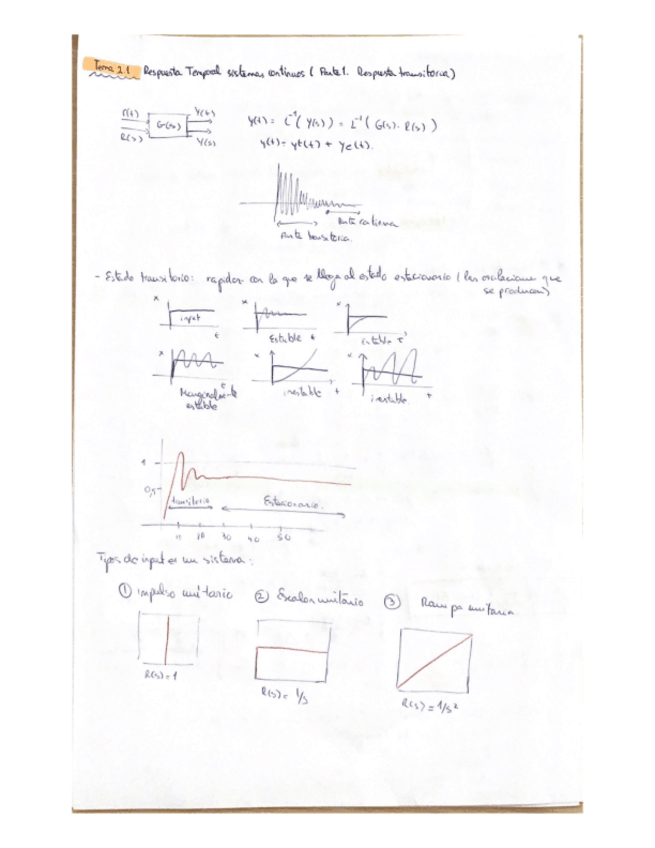 Tema 2.1 Respuesta Temporal sistemas continuos (Parte 1. Respuesta transitoria)
r(t) Y(t)
G(s)
R(s) Y(s)
y(t) = L⁻¹(Y(s)) = L⁻¹(G(s)·R(s))
y(t) = yt(t) + ye(t).
Parte transitoria.
- Estado transitorio: rapidez con la que se llega al estado estacionario (las oscilaciones que
se producen)
x x x
input
t estable t estable t
x x x
t Marginalmente inestable t inestable t
estable
1
0,5
transitorio Estacionario.
10 20 30 40 50
Tipos de input en un sistema:
① impulso unitario ② Escalon unitario ③ Rampa unitaria
R(s)=1 R(s)= 1/s R(s) = 1/s²